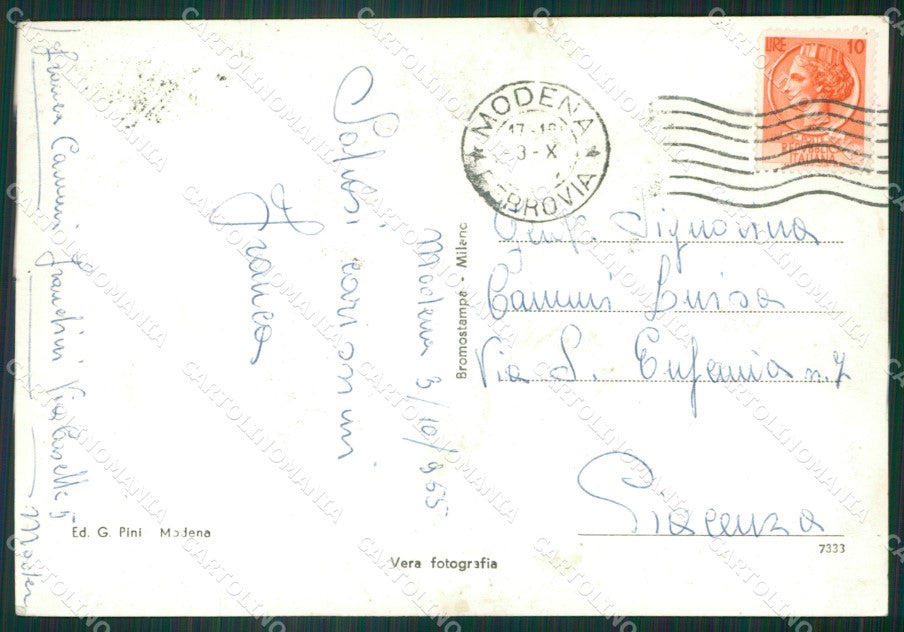 LIRE 10
REPUBBLICA
ITALIANA
MODENA
17-18
3-X
FERROVIA
Modena 3/10/955
Salusi carissimi
Franca
Franca Cammi Franchini Via Caselle 5
Modena
Gent. Signorina
Cammi Luisa
Via S. Eufemia n. 7
Piacenza
Bromostampa - Milano
Ed. G. Pini Modena
Vera fotografia
7333
CARTOLINOMANIA